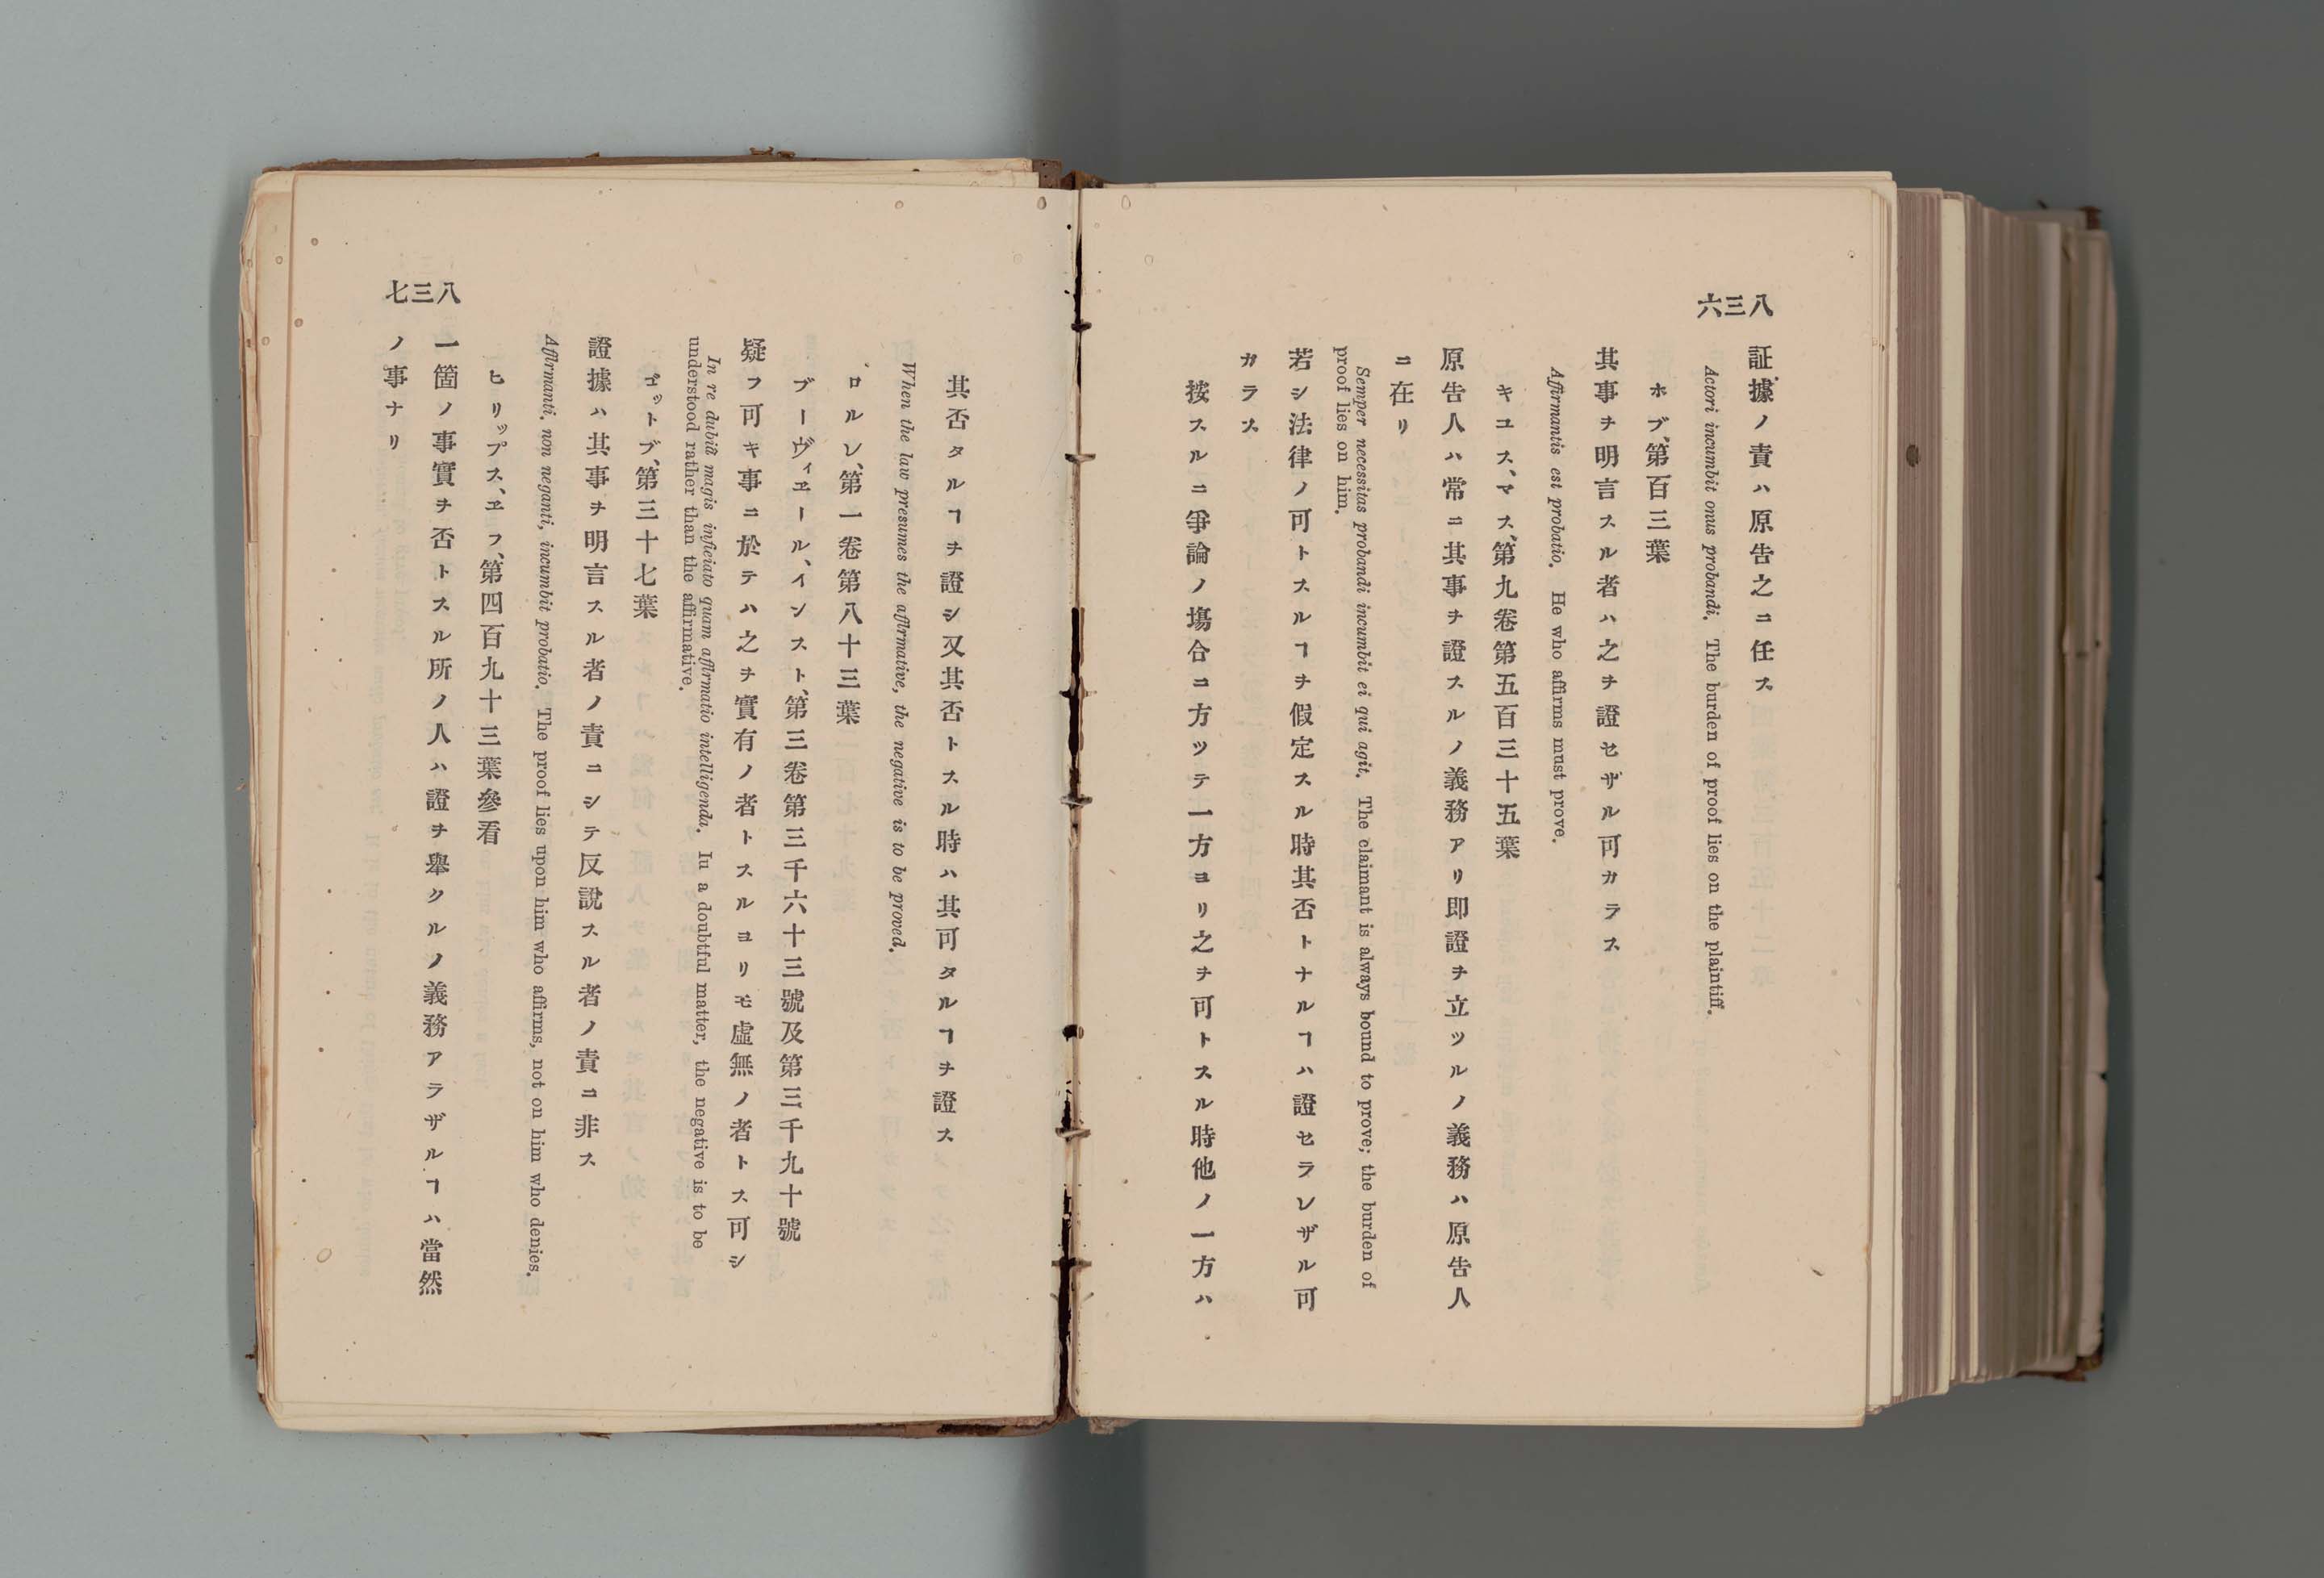 八三六
証據ノ責ハ原告之ニ任ス
Actori incumbit onus probandi. The burden of proof lies on the plaintiff.
ホブ、第百三葉
其事ヲ明言スル者ハ之ヲ證セザル可カラス
Affirmantis est probatio. He who affirms must prove.
キユス、マス、第九卷第五百三十五葉
原告人ハ常ニ其事ヲ證スルノ義務アリ即證ヲ立ツルノ義務ハ原告人
ニ在リ
Semper necessitas probandi incumbit ei qui agit. The claimant is always bound to prove; the burden of
proof lies on him.
若シ法律ノ可トスルヿヲ假定スル時其否トナルヿハ證セラレザル可
カラス
按スルニ爭論ノ塲合ニ方ツテ一方ヨリ之ヲ可トスル時他ノ一方ハ
其否タルヿヲ證シ又其否トスル時ハ其可タルヿヲ證ス
When the law presumes the affirmative, the negative is to be proved.
ロルレ、第一卷第八十三葉
ブーヴィヱール、インスト、第三卷第三千六十三號及第三千九十號
疑フ可キ事ニ於テハ之ヲ實有ノ者トスルヨリモ虛無ノ者トス可シ
In re dubiâ magis inficiato quam affirmatio intelligenda. Iu a doubtful matter, the negative is to be
understood rather than the affirmative.
ゴットブ、第三十七葉
證據ハ其事ヲ明言スル者ノ責ニシテ反說スル者ノ責ニ非ス
Affirmanti, non neganti, incumbit probatio. The proof lies upon him who affirms, not on him who denies.
ヒリップス、ヱフ、第四百九十三葉參看
一箇ノ事實ヲ否トスル所ノ人ハ證ヲ舉クルノ義務アラザルヿハ當然
ノ事ナリ
八三七